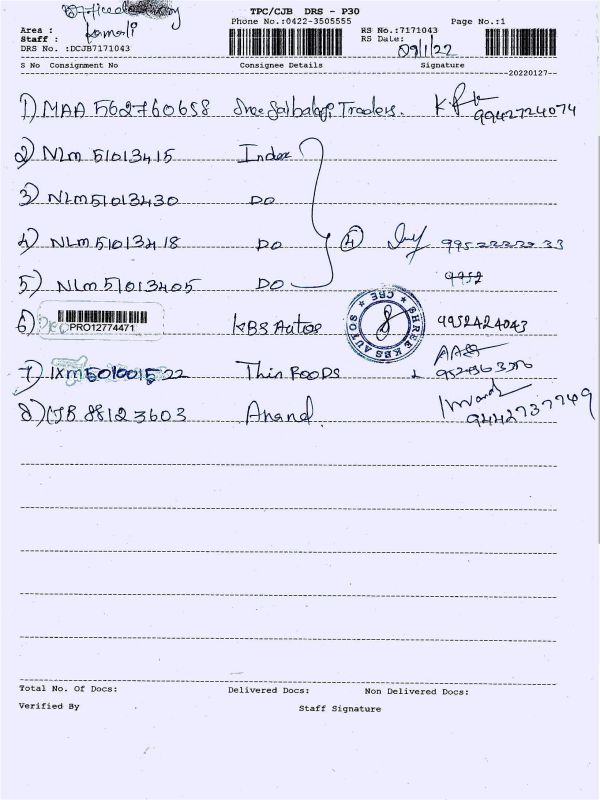 TPC/CJB DRS - P30
Phone No.:0422-3505555 Page No.:1
Area :
Staff : Kamali
DRS No. :DCJB7171043
RS No.:7171043
RS Date: 09/1/22
S No Consignment No Consignee Details Signature
20220127
1) MAA 562760658 Sree Saibalaji Traders. 9942724074
2) NLM 51013415 Index
3) NLM 51013430 DO
4) NLM 51013418 DO 4 9952222233
5) NLM 51013405 DO 9952
6) PRO12774471 KBS Autos 8 9952424043
SHREE KBS AUTOS CBE
7) IXM501001522 Thin FOODS
8) CJB 88123603 Anand 9442737749
Total No. Of Docs: Delivered Docs: Non Delivered Docs:
Verified By Staff Signature